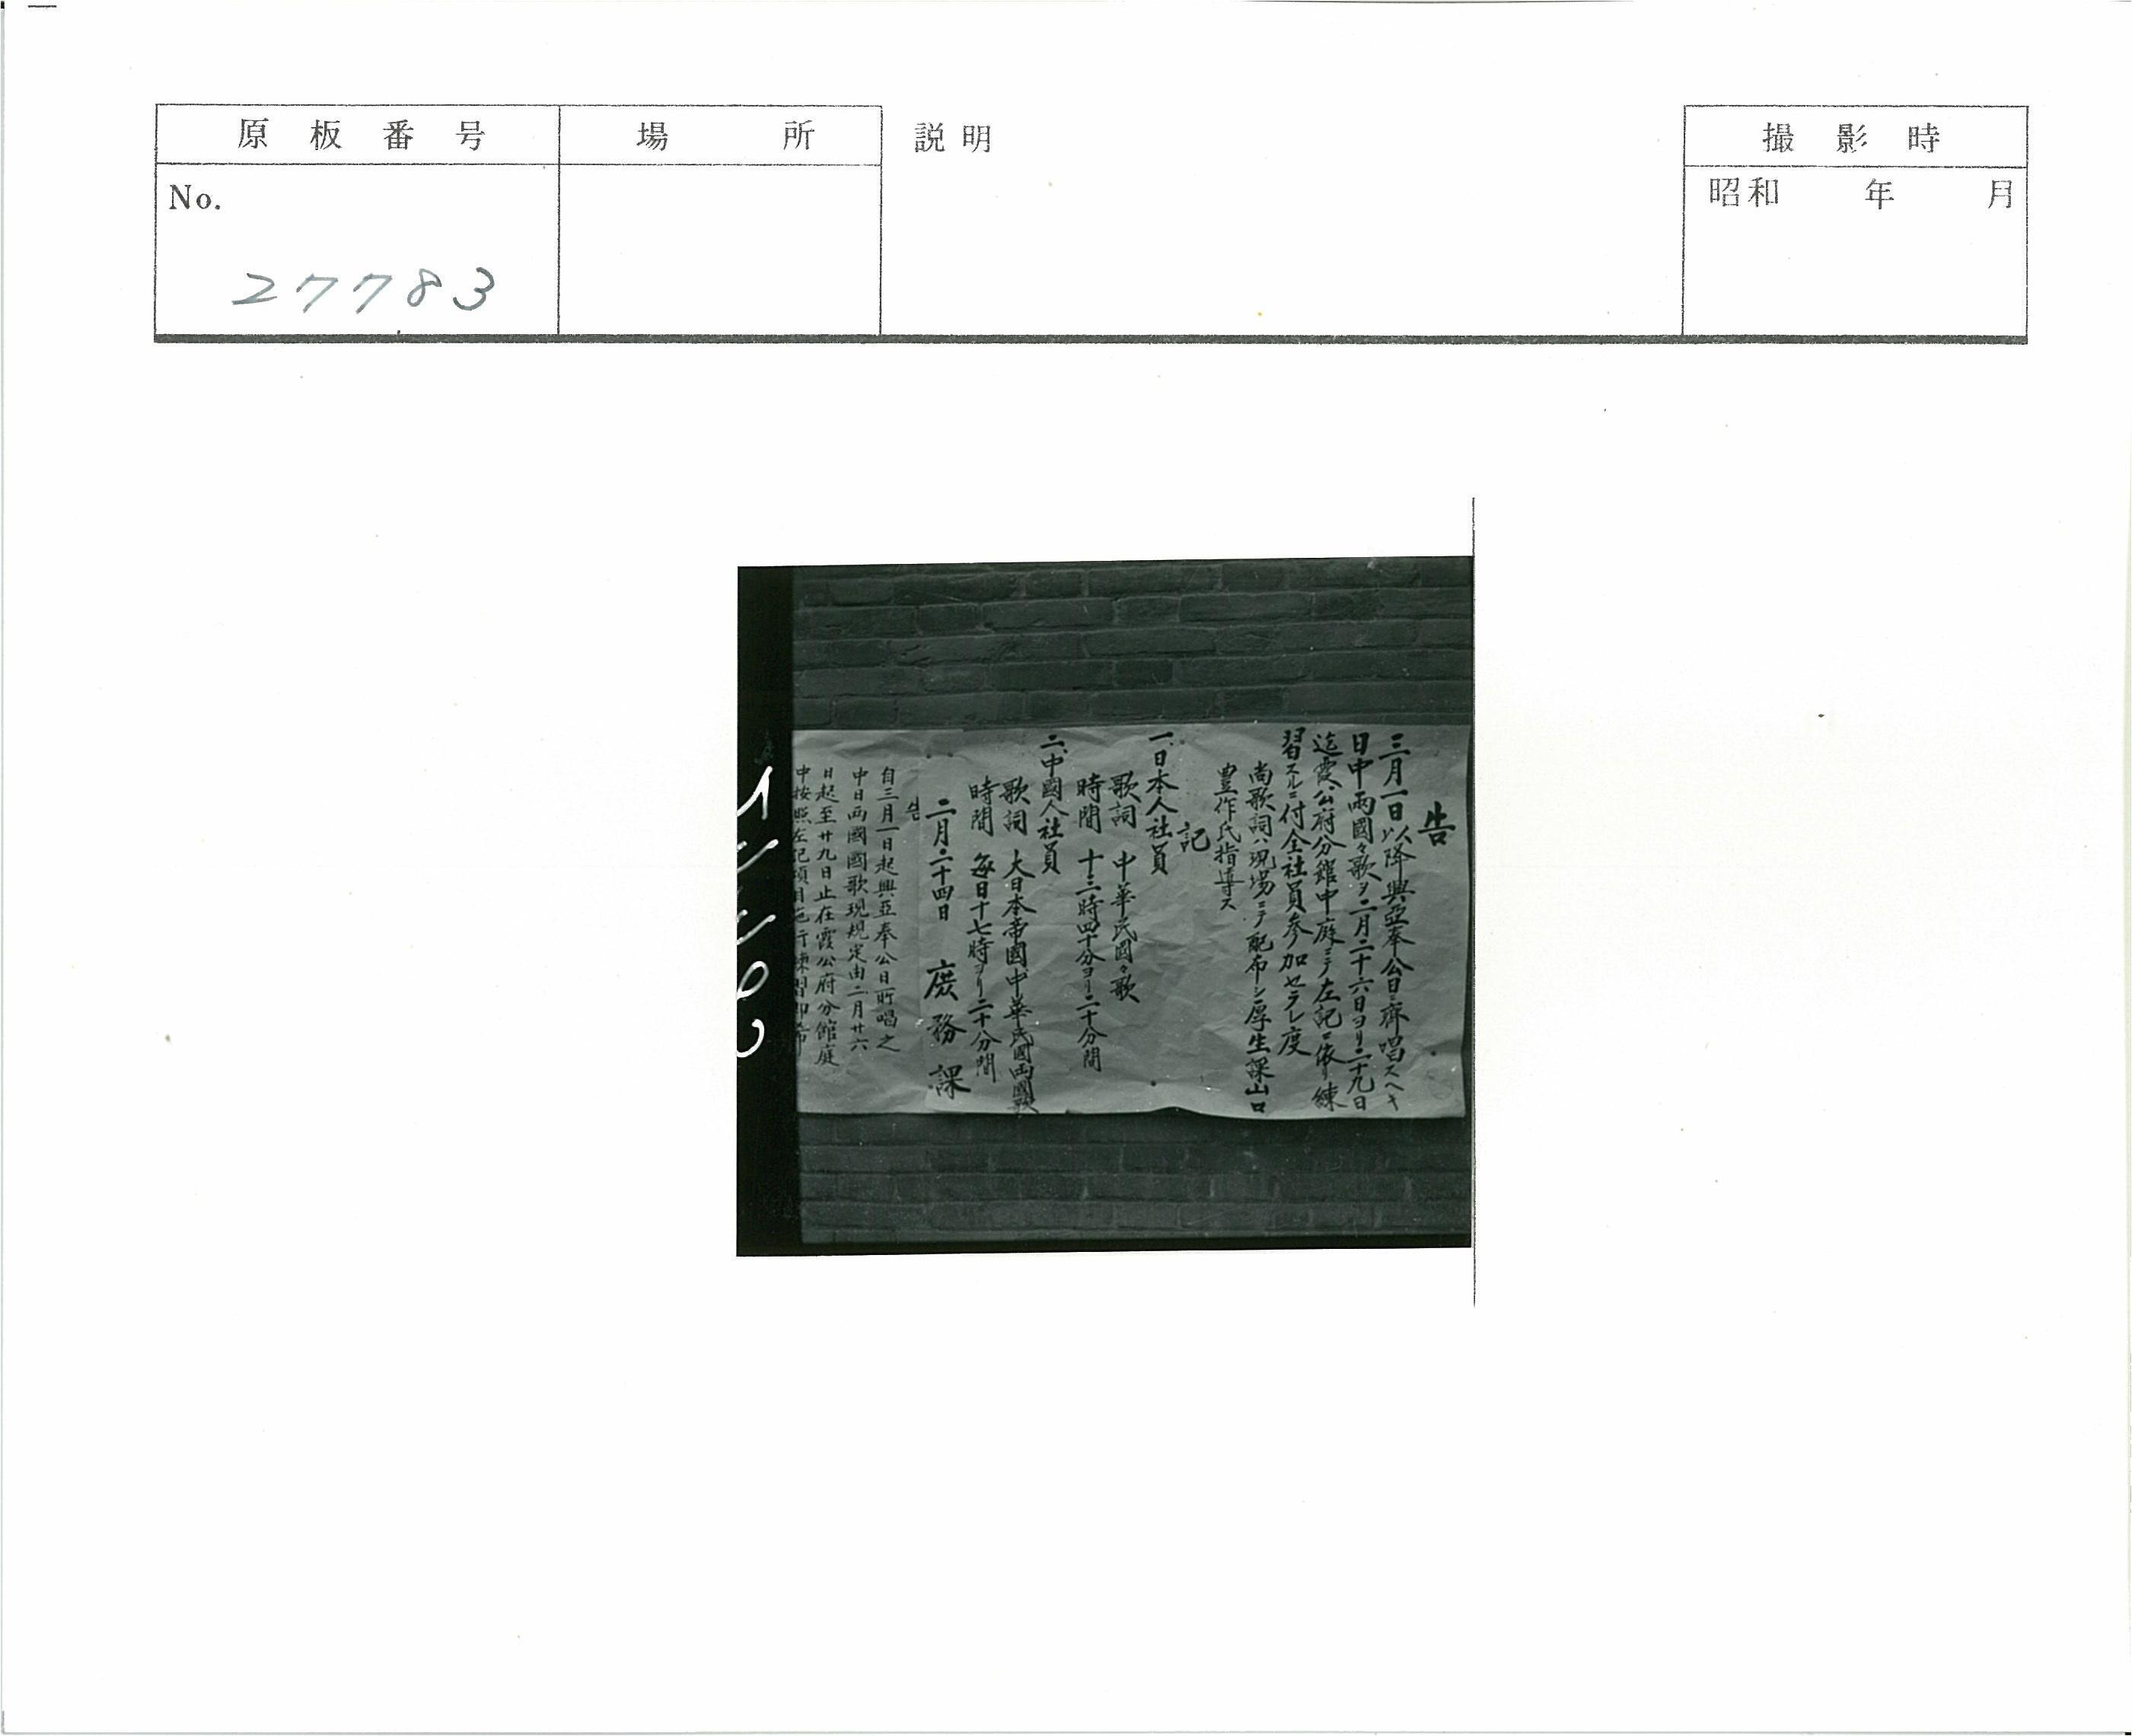 原板番号
場所
説明
撮影時
No.
27783
昭和 年 月
告
三月一日以降興亞奉公日ニ齊唱スヘキ
日中兩國々歌ヲ二月二十六日ヨリ二十九日
迄霞公府分館中庭ニテ左記ニ依リ練
習スルニ付全社員参加セラレ度
尚歌詞ハ現場ニテ配布シ厚生課山口
豊作氏指導ス
記
一、日本人社員
歌詞 中華民國々歌
時間 十二時四十分ヨリ二十分間
二、中國人社員
歌詞 大日本帝國中華民國両國歌
時間 毎日十七時ヨリ二十分間
二月二十四日 庶務課
自三月一日起興亞奉公日所唱之
中日両國國歌現規定由二月廿六
日起至廿九日止在霞公府分館庭
中按照左記項目施行練習即希